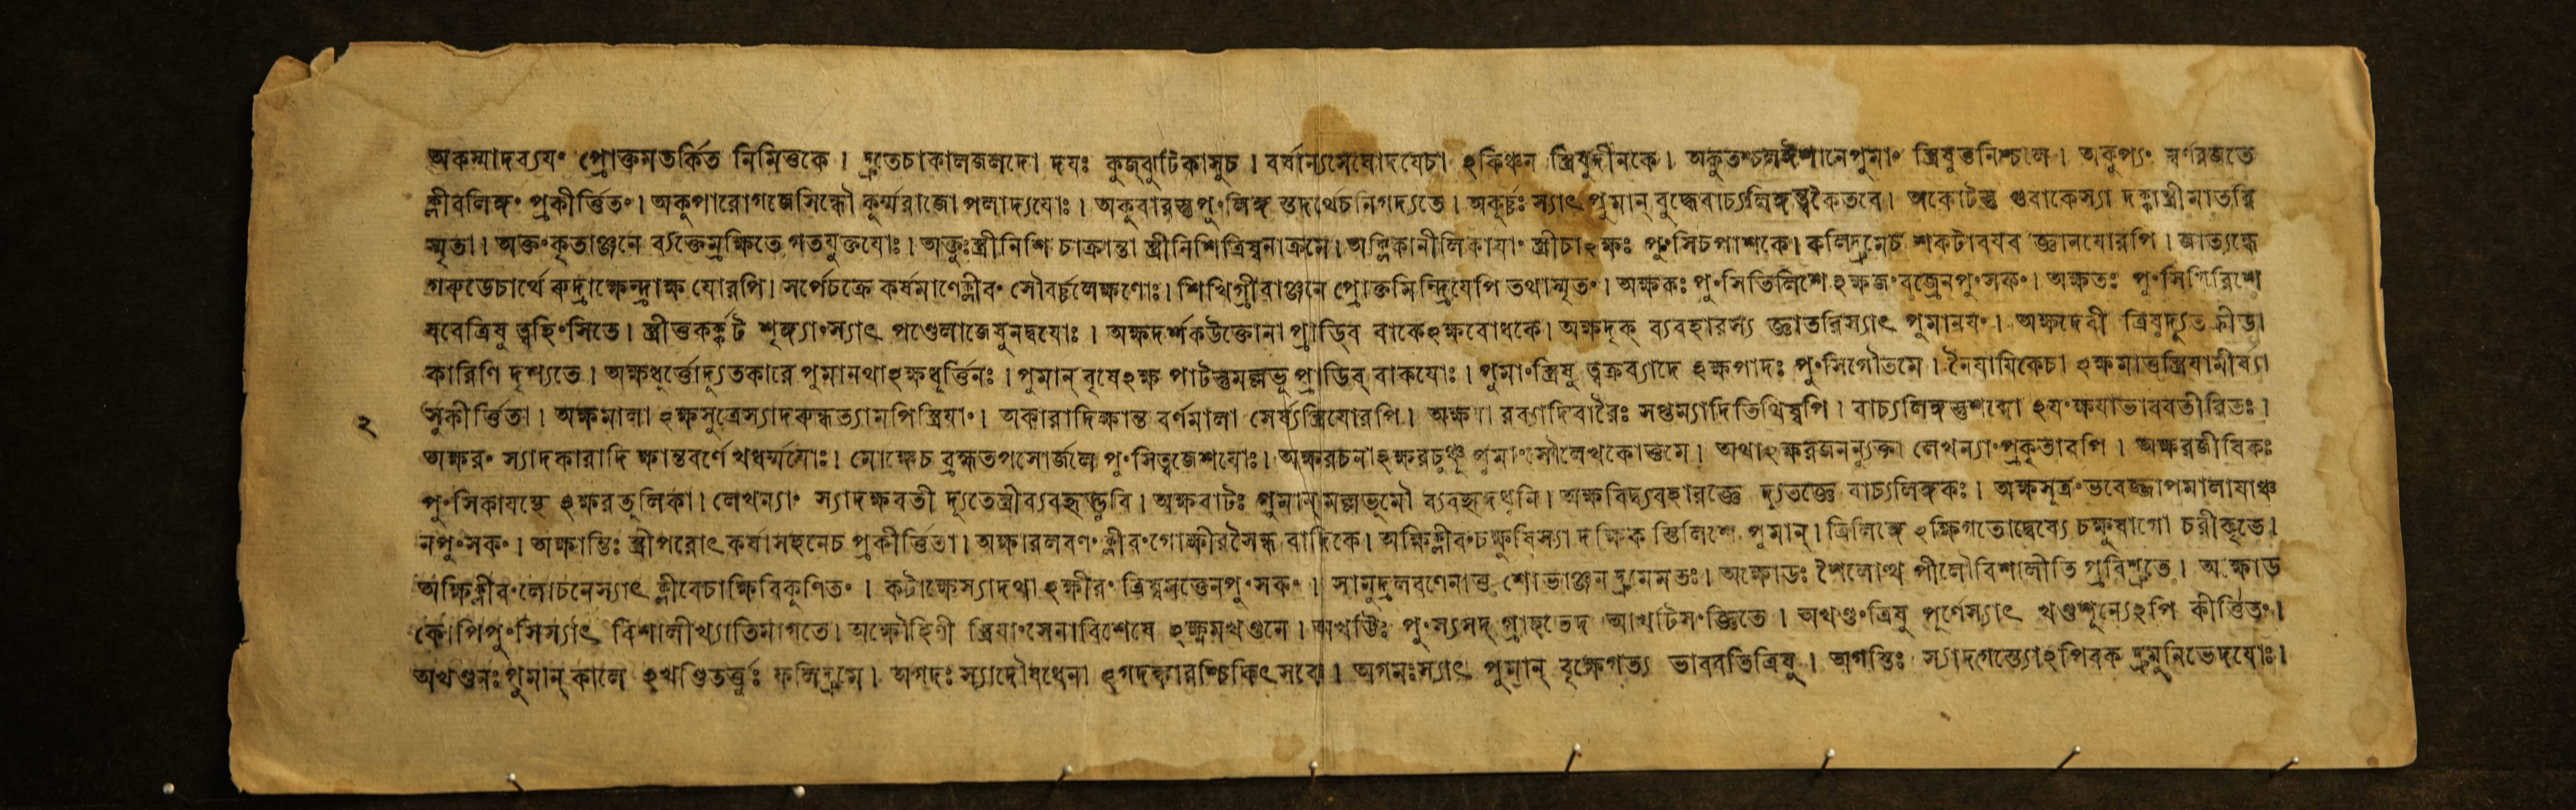 অকস্মাদব্যয়ং প্রোক্তমতর্কিত নিমিত্তকে । দ্রুতেচাকালজলদো দযঃ কুজ্ঝটিকাসুচ । বর্ষান্যমেঘোদযেচা ঽকিঞ্চন স্ত্রিষুর্দীনকে । অকুতশ্চলঈশানেপুমাং স্ত্রিষুতুনিশ্চলে । অকুপ্যং স্বর্ণরজতে
ক্লীবলিঙ্গং প্রকীর্ত্তিতং । অকূপারোগজেসিন্ধৌ কূর্ম্মরাজো পলাদ্যযোঃ । অকুবারস্তুপুংলিঙ্গ স্তদর্থেচনিগদ্যতে । অকূর্চ্চঃ স্যাৎ পুমান্ বুদ্ধেবাচ্যলিঙ্গস্ত্বকৈতবে । অকোটস্তু গুবাকেস্যা দক্কাস্ত্রীমাতরি
স্মৃতা । অক্তংকৃতাঞ্জনে ব্যক্তেম্রক্ষিতে গতযুক্তযোঃ । অক্তুঃস্ত্রীনিশি চাক্রান্তা স্ত্রীনিশিত্রিষ্বনাক্রমে । অক্লিকানীলিকাযাং স্ত্রীচাঽক্ষঃ পুংসিচপাশকে । কলিদ্রুমেচ শকটাবযব জ্ঞানযোরপি । জাত্যন্ধে
গরুডেচার্থে রুদ্রাক্ষেন্দ্রাক্ষ যোরপি । সর্পেচক্রে কর্ষমাণেক্লীবং সৌবর্চ্চলেক্ষণোঃ । শিখিগ্রীবাঞ্জনে প্রোক্তমিন্দ্রিযেপি তথাস্মৃতং । অক্ষকঃ পুংসিতিলিশে ঽক্ষজংবজ্রেনপুংসকং । অক্ষতঃ পুংসিগিরিশে
যবেত্রিষু ত্বহিংসিতে । স্ত্রীতুকর্ক্কট শৃঙ্গ্যাংস্যাৎ পণ্ডেলাজেষুনদ্বযোঃ । অক্ষদর্শকউক্তোনা প্রাড্বিব বাকেঽক্ষবোধকে । অক্ষদৃক্ ব্যবহারস্য জ্ঞাতরিস্যাৎ পুমানযং । অক্ষদেবী ত্রিষুদ্যূত ক্রীডা
কারিণি দৃশ্যতে । অক্ষধূর্ত্তোদ্যূতকারে পুমানথাঽক্ষধূর্ত্তিনঃ । পুমান্ বৃষেঽক্ষ পাটস্তুমল্লভূ প্রাড্বিব্ বাকযোঃ । পুমাংস্ত্রিষু ত্বক্রব্যাদে ঽক্ষপাদঃ পুংসিগৌতমে । নৈযাযিকেচা ঽক্ষমাতুস্ত্রিযামীর্ষ্যা
সুকীর্ত্তিতা । অক্ষমালা ঽক্ষসুত্রেস্যাদরুন্ধত্যামপিস্ত্রিযাং । অকারাদিক্ষান্ত বর্ণমালা সের্ষ্যস্ত্রিযোরপি । অক্ষযা রব্যাদিবারৈঃ সপ্তম্যাদিতিথিষ্বপি । বাচ্যলিঙ্গস্তুশব্দো ঽযংক্ষযাভাববতীরিতঃ ।
২
অক্ষরং স্যাদকারাদি ক্ষান্তবর্ণে খধর্ম্মযোঃ । মোক্ষেচ ব্রহ্মতপসোর্জলে পুংসিত্বজেশযোঃ । অক্ষরচনাঽক্ষরচুঞ্চু পুমাংসৌলেখকোত্তমে । অথাঽক্ষরজনন্যুক্তা লেখন্যাংপ্রকৃতাবপি । অক্ষরজীবিকঃ
পুংসিকাযস্থে ঽক্ষরতুলিকা । লেখন্যাং স্যাদক্ষবতী দ্যূতেস্ত্রীব্যবহৃদ্ভুবি । অক্ষবাটঃ পুমান্ মল্লভূমৌ ব্যবহৃদধ্বনি । অক্ষবিদ্ব্যবহারজ্ঞে দ্যূতজ্ঞে বাচ্যলিঙ্গকঃ । অক্ষসূত্রংভবেজ্জাপমালাযাঞ্চ
নপুংসকং । অক্ষান্তিঃ স্ত্রীপরোৎকর্ষাসহনেচ প্রকীর্ত্তিতা । অক্ষারলবণংক্লীবংগোক্ষীরসৈন্ধ বাদিকে । অক্ষিক্লীবংচক্ষুষিস্যা দক্ষিক স্তিলিশে পুমান্ । ত্রিলিঙ্গে ঽক্ষিগতোদ্বেষ্যে চক্ষুষাগো চরীকৃতে ।
অক্ষিক্লীবংলোচনেস্যাৎ ক্লীবেচাক্ষিবিকূণিতং । কটাক্ষেস্যাদথাঽক্ষীরং ত্রিষ্বমত্তেনপুংসকং । সামুদ্রলবণেনাতু শোভাঞ্জনদ্রুমেমতঃ । অক্ষোডঃ শৈলোত্থ পীলৌবিশালীতি প্রবিশ্রুতে । অক্ষোড
কোপিপুংসিস্যাৎ বিশালীখ্যাতিমাগতে । অক্ষৌহিণী স্ত্রিযাংসেনাবিশেষে ঽক্ষ্মমখণ্ডনে । অখট্টিঃ পুংস্যসদ্ গ্রাহভেদ আখটিসংজ্ঞিতে । অখণ্ডংত্রিষু পূর্ণেস্যাৎ খণ্ডশূন্যেঽপি কীর্ত্তিতং ।
অখণ্ডনঃপুমান্ কালে ঽখণ্ডিতর্ত্তুঃ ফলিদ্রুমে । অগদঃ স্যাদৌষধেনা ঽগদঙ্কারশ্চিকিৎসকে । অগমঃস্যাৎ পুমান্ বৃক্ষেগত্য ভাববতিত্রিষু । অগস্তিঃ স্যাদগস্ত্যোঽপিবক দ্রুমুনিভেদযোঃ ।